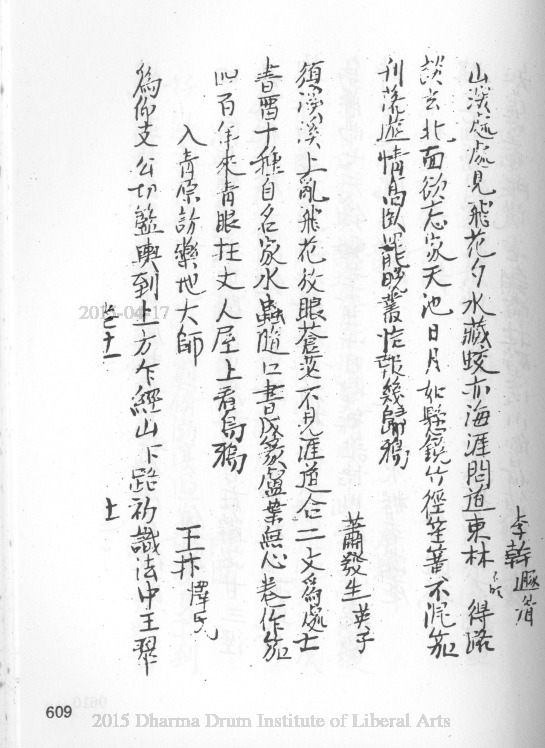 李幹 豚魚
山深處處見飛花夕水藏蛟亦海涯問道東林 得諸
談玄北面欲忘家天池日月如懸鏡竹徑笙簧不混笳
刊落遊情高臥罷晚叢信報幾歸鴉
蕭發生 英子
須溪溪上亂飛花放眼蒼茫不見涯道合二文為處士
書留十種自名家水蟲隨口書成篆蘆葉無心卷作笳
四百年來青眼在丈人屋上看烏鴉
入青原訪樂地大師
王 擇
為仰支公切籃輿到上方乍經山下路初識法中王翠
卷十一
士
2015-04-17
609
2015 Dharma Drum Institute of Liberal Arts